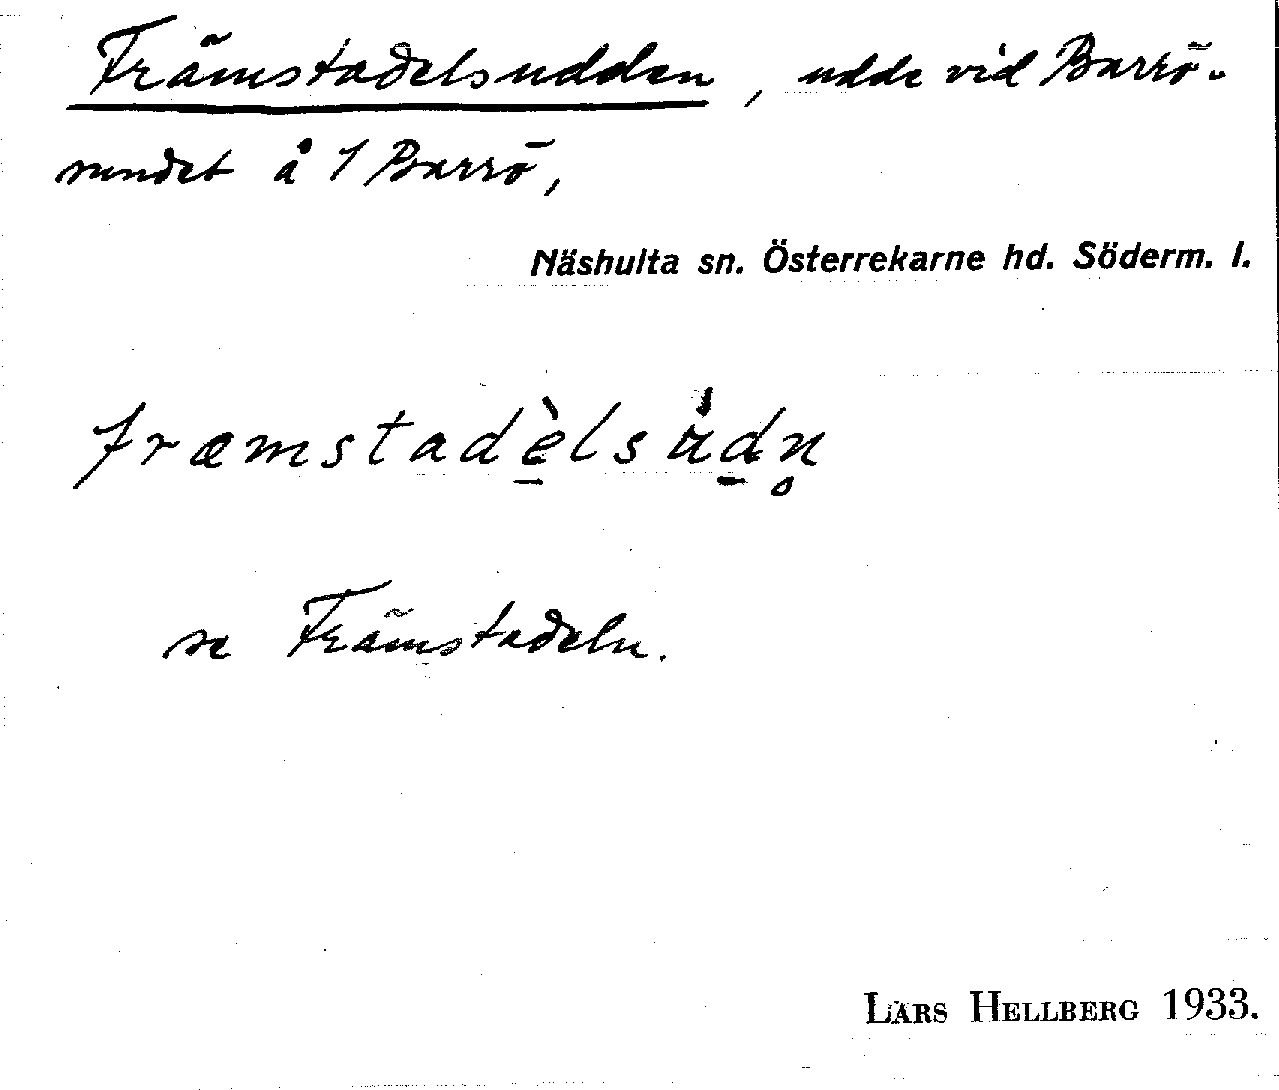 Främstadelsudden, udde vid Barrö-
sundet å 1 Barrö,
Näshulta sn. Österrekarne hd. Söderm. l.
fræmstadèlsùdn̥
se Främstadeln.
LARS HELLBERG 1933.